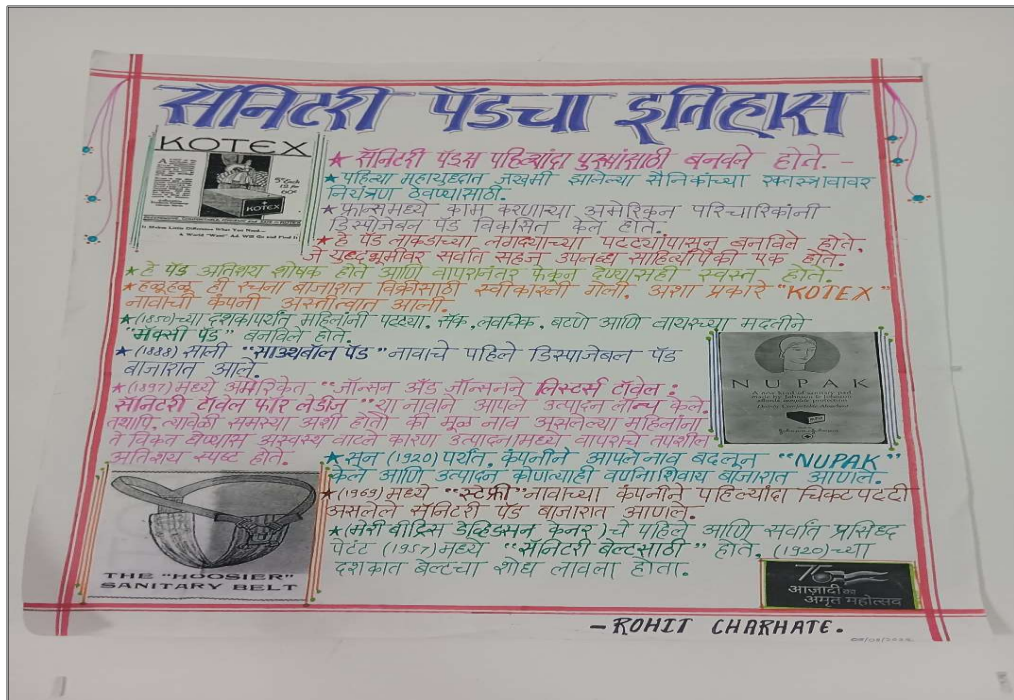 सॅनिटरी पॅडचा इतिहास
KOTEX
5¢ Each
12 for
60¢
KOTEX
It Makes Little Difference What You Need—
A World "Want" Ad. Will Go and Find It
★ सॅनिटरी पॅडस पहिल्यांदा पुरुषांसाठी बनवले होते. -
★ पहिल्या महायुद्धात जखमी झालेल्या सैनिकांच्या रक्तस्त्रावावर
नियंत्रण ठेवण्यासाठी.
★ फ्रान्समध्ये काम करणाऱ्या अमेरिकन परिचारिकांनी
डिस्पोजेबल पॅड विकसित केले होते.
★ हे पॅड लाकडाच्या लगद्याच्या पट्ट्यांपासून बनविले होते.
जे युद्धभूमीवर सर्वात सहज उपलब्ध साहित्यांपैकी एक होते.
★ हे पॅड अतिशय शोषक होते आणि वापरानंतर फेकून देण्यासही स्वस्त होते.
★ हळूहळू ही रचना बाजारात विक्रीसाठी स्वीकारली गेली. अशा प्रकारे "KOTEX"
नावाची कंपनी अस्तीत्वात आली.
★ (1850)च्या दशकापर्यंत महिलांनी पट्ट्या, सॅक, लवचिक, बटणे आणि वायरच्या मदतीने
"मॅक्सी पॅड" बनविले होते.
★ (1888) साली "साउथबॉल पॅड" नावाचे पहिले डिस्पाजेबल पॅड
बाजारात आले.
★ (1897) मध्ये अमेरिकेत "जॉन्सन अँड जॉन्सनने लिस्टर्स टॉवेल :
सॅनिटरी टॉवेल फॉर लेडीज" या नावाने आपले उत्पादन लान्च केले.
तथापि, त्यावेळी समस्या अशी होती की मूळ नाव असलेल्या महिलांना
ते विकत घेण्यास अस्वस्थ वाटले कारण उत्पादनामध्ये वापराचे तपशील
अतिशय स्पष्ट होते.
NUPAK
A new kind of sanitary pad
made by Johnson & Johnson
★ सन (1920) पर्यंत, कंपनीने आपले नाव बदलून "NUPAK"
केले आणि उत्पादन कोणत्याही वर्णनाशिवाय बाजारात आणले.
★ (1969) मध्ये "स्टेफ्री" नावाच्या कंपनीने पहिल्यांदा चिकट पट्टी
असलेले सॅनिटरी पॅड बाजारात आणले.
★ (मेरी बीट्रिस डेव्हिडसन केनर)चे पहिले आणि सर्वात प्रसिध्द
पेटंट (1957) मध्ये "सॅनिटरी बेल्टसाठी" होते. (1920) च्या
दशकात बेल्टचा शोध लावला होता.
THE "HOOSIER"
SANITARY BELT
75
आज़ादी का
अमृत महोत्सव
- ROHIT CHARHATE.